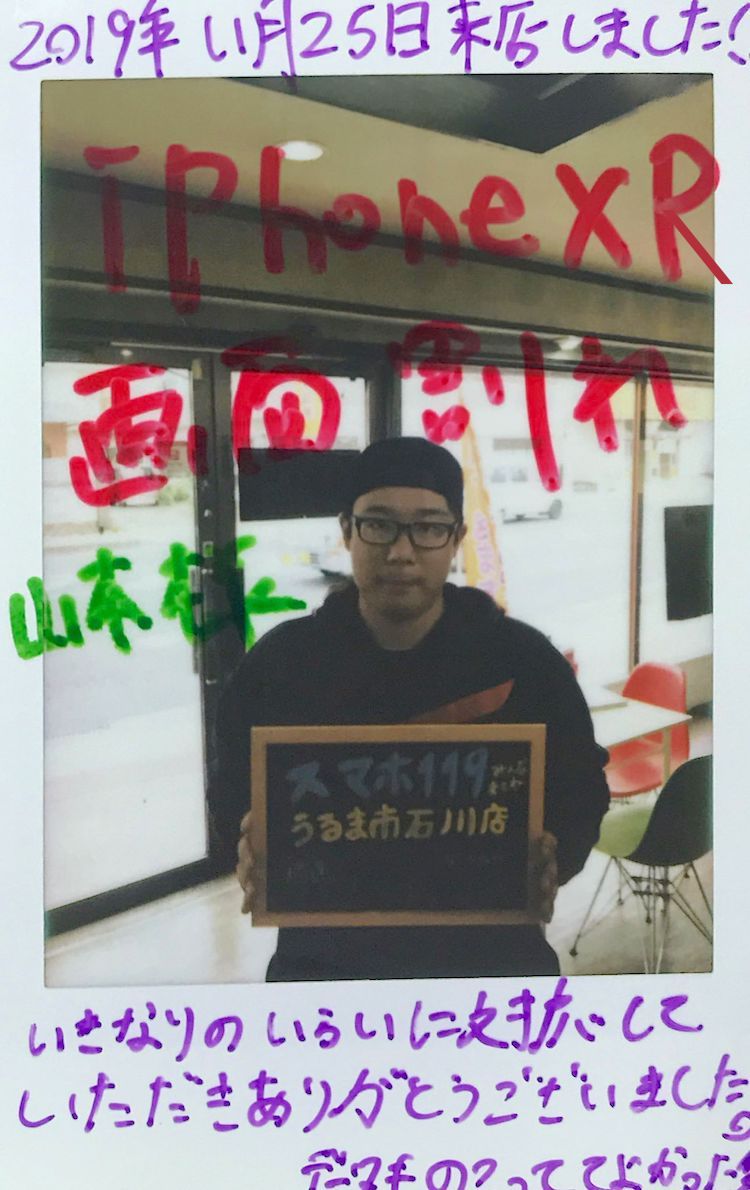 2019年 11月25日来店しました!
iPhone XR
画面割れ
山本
スマホ119
うるま市石川店
いきなりの いらいに対応して
いただきありがとうございました。
データものこっててよかった